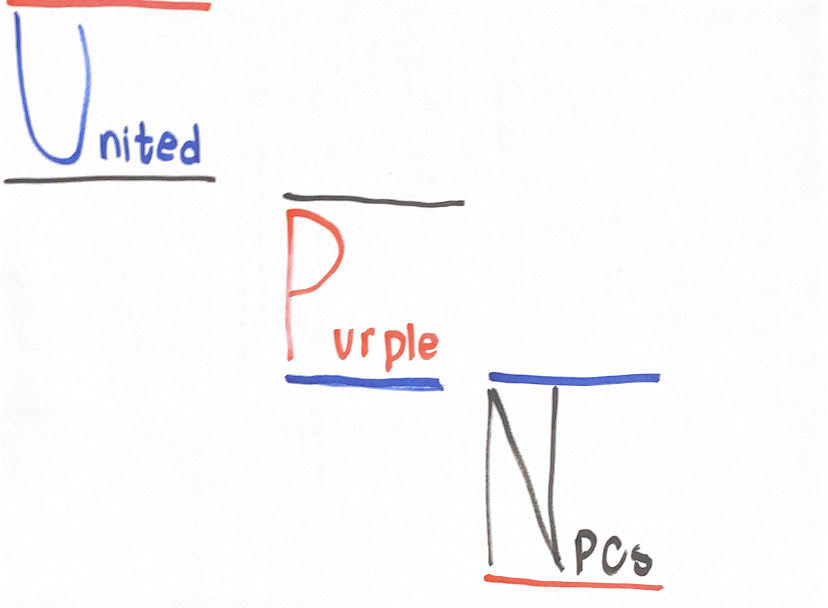 United
Purple
NPCs